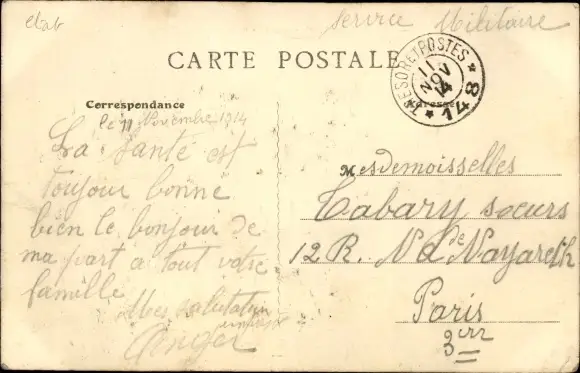 Service Militaire
CARTE POSTALE
TRESOR ET POSTES
11
NOV
14
* 148 *
Correspondance
Adresse
le 11 Novembre 1914
La santé est
toujour bonne
bien le bonjour de
ma part a tout votre
famille
Mes salutation
Mesdemoisselles
Tabary sœurs
12 R. N D de Nazareth
Paris
3eme